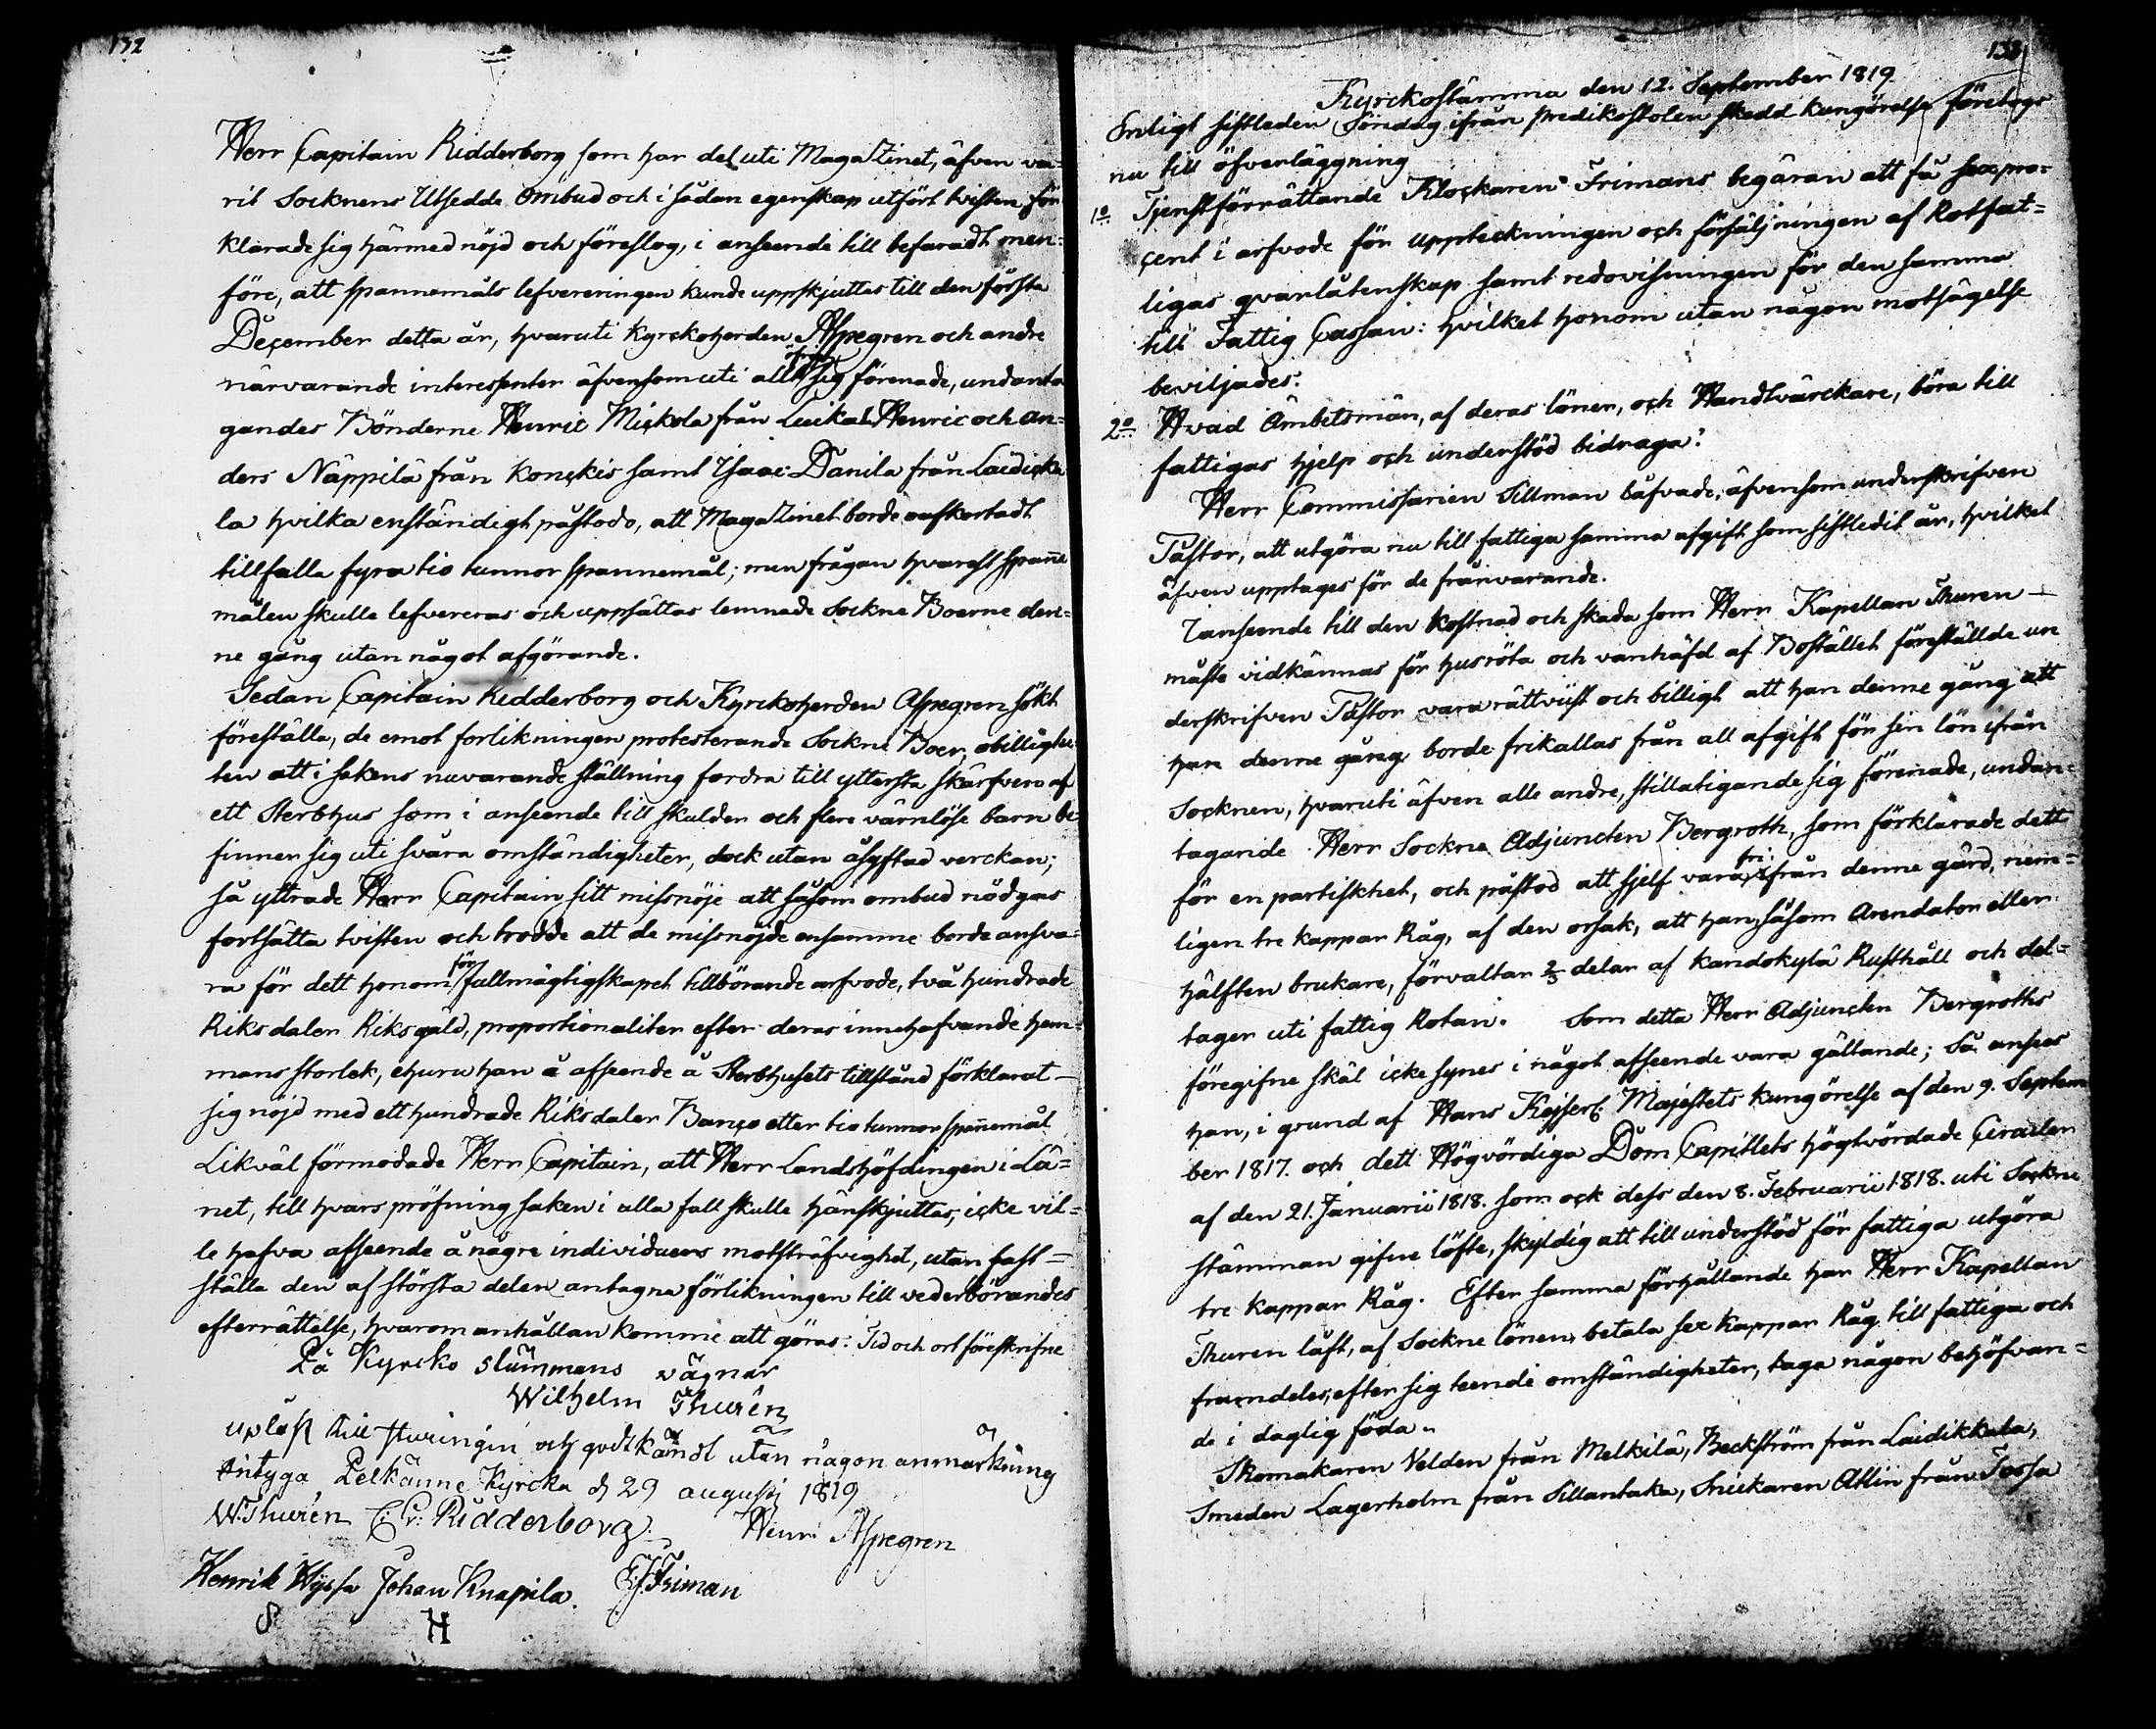 132
Herr Capitain Ridderborg som har del uti Magatzinet, äfven va=
rit Socknens Utsedde Ombud och i sådan egenskap utfört tvisten, för
klarade sig härmed nöjd och föreslog, i anseende till befaradt men=
före, att spannemåls lefvereringen kunde uppskjuttas till den första
December detta år, hvaruti Kyrckoherden Aspegren och andre
närvarande interessenter äfvensom uti allt öfrigt sig förenade, undanta
gandes Bönderne Henric Mickola från Luikala Henric och An=
ders Näppilä från Konckis samt Isaac Danila från Laidicka
la hvilka enständigt påstodo, att Magatzinet borde oafkortadt
tillfalla fyratio tunnor spannemål; men frågan hvarest spanne
målen skulle lefvereras och uppsättas lemnade Sockne Boerne den=
ne gång utan något afgörande.
Sedan Capitain Ridderborg och Kyrckoherden Aspegren sökt
föreställa, de emot forlikningen protesterande Sockne Boer, obillighe
ten att i sakens nuvarande ställning fordra till yttersta skärfven af
ett Sterbhus som i anseende till skulder och flere värnlöse barn be
finner sig uti svåra omständigheter, dock utan åsyftad verckan;
så yttrade Herr Capitain sitt missnöje att såsom ombud nödgas
fortsätta tvisten och trodde att de missnöjde ensamme borde ansva=
ra för dett honom för fullmägtigskapet tillbörande arfvode, två hundrade
Riksdaler Riksgäld, proportionaliter efter deras innehafvande hem=
mans storlek, ehuru han å afseende å Sterbhusets tillstånd förklarat
sig nöjd med ett hundrade Riksdaler Banco eller tio tunnor spannemål
Likväl förmodade Herr Capitain, att Herr Landshöfdingen i Lä=
net, till hvars pröfning saken i alla fall skulle hänskjuttas, icke vil=
le hafva afseende å någre individuers motsträfvighet, utan fast=
ställa den af största delen antagna förlikningen till vederbörandes
efterrättelse, hvarom anhållan komme att göras: Tid och ort föreskrifne
På Kyrcko stämmans vägnar
Wilhelm Thurén
upläst till justeringen och godtkändt utan någon anmärkning
intyga Pelkänne Kyrcka d 29 augusti 1819
W. Thurén C: Gr: Ridderborg. Henr: Aspegren
Henrik Hyssa Johan Knapila. E.J. Friman
S H
133
Kyrckostämma den 12. September 1819
Enligt sistleden Söndag ifrån Predikostolen skedd kungörelse företogs
nu till öfverläggning
1o Tjenstförrättande Klockaren Frimans begäran att få sexpro=
cent i arfvode för uppteckningen och försäljningen af Rotfat=
ligas qvarlåtenskap samt redovisningen för den samma
till Fattig Cassan: hvilket honom utan någon motsägelse
beviljades.
2o Hvad Ämbetsmän, af deras löner, och Handtvärckare, böra till
fattigas hjelp och understöd bidraga?
Herr Commissarien Sillman låfvade, äfvensom underskrifven
Pastor, att utgöra nu till fattiga samma afgift som sistledit år, hvilket
äfven upptages för de frånvarande.
I anseende till den kostnad och skada som Herr Kapellan Thuren
måste vidkännas för husröta och vanhäfd af Bostället föreställde un
derskrifven Pastor vara rättvist och billigt att han denne gång att
han denne gång borde frikallas från all afgift för sin lön ifrån
Socknen, hvaruti äfven alle andre, stillatigande sig förenade, undan=
tagande Herr Sockne Adjuncten Bergroth, som förklarade dett
för en partiskhet, och påstod att sjelf vara fri från denne gärd, nem=
ligen tre kappar Råg, af den orsak, att han, såsom Arendator eller
hälften brukare, förvaltar 2/3 delar af Kandokylä Rusthåll och del=
tager uti fattig Rotan. Som detta Herr Adjuncten Bergroths
föregifne skäl icke synes i något afseende vara gällande; Så anses
han, i grund af Hans Kejserl. Majestets kungörelse af den 9. Septem
ber 1817. och dett Högvördiga Dom Capitlets högtvördade Circulär
af den 21. Januarii 1818. som ock dess den 8. Februarii 1818. uti Sockne
stämman gifne löfte, skyldig att till understöd för fattiga utgöra
tre kappar Råg. Efter samma förhållande har Herr Kapellan
Thuren låft, af Sockne lönen, betala sex kappar Råg till fattiga och
framdeles, efter sig teende omständigheter, taga någon behöfvan=
de i daglig föda.
Skomakaren Velden från Melkilä, Beckström från Laidikkala,
Smeden Lagerholm från Sillantaka, Snickaren Ahlin från Tossa